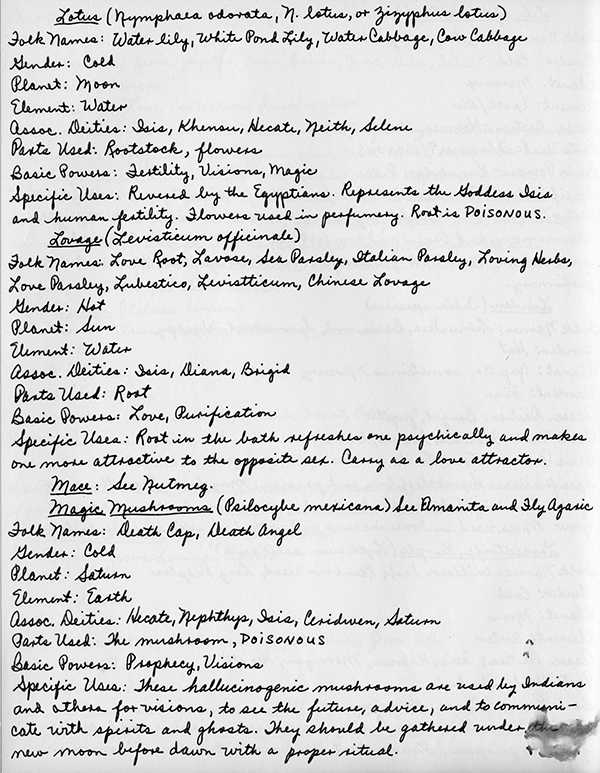 Lotus (Nymphaea odorata, N. lotus, or Zizyphus lotus)
Folk Names: Water lily, White Pond Lily, Water Cabbage, Cow Cabbage
Gender: Cold
Planet: Moon
Element: Water
Assoc. Deities: Isis, Khensu, Hecate, Neith, Selene
Parts Used: Rootstock, flowers
Basic Powers: Fertility, Visions, Magic
Specific Uses: Revered by the Egyptians. Represents the Goddess Isis
and human fertility. Flowers used in perfumery. Root is POISONOUS.
Lovage (Levisticum officinale)
Folk Names: Love Root, Lavose, Sea Parsley, Italian Parsley, Loving Herbs,
Love Parsley, Lubestico, Levistticum, Chinese Lovage
Gender: Hot
Planet: Sun
Element: Water
Assoc. Deities: Isis, Diana, Brigid
Parts Used: Root
Basic Powers: Love, Purification
Specific Uses: Root in the bath refreshes one psychically and makes
one more attractive to the opposite sex. Carry as a love attractor.
Mace: See Nutmeg.
Magic Mushrooms (Psilocybe mexicana) See Amanita and Fly Agaric
Folk Names: Death Cap, Death Angel
Gender: Cold
Planet: Saturn
Element: Earth
Assoc. Deities: Hecate, Nephthys, Isis, Ceridwen, Saturn
Parts Used: The mushroom, POISONOUS
Basic Powers: Prophecy, Visions
Specific Uses: These hallucinogenic mushrooms are used by Indians
and others for visions, to see the future, advice, and to communi-
cate with spirits and ghosts. They should be gathered under the
new moon before dawn with a proper ritual.